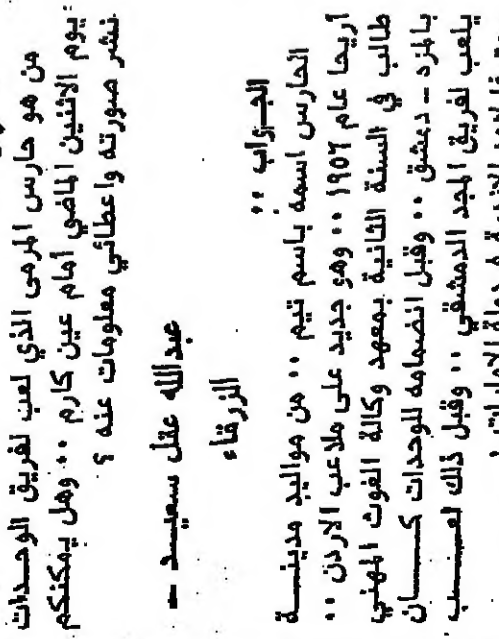 من هو حارس المرمى الذي لعب لفريق الوحدات
يوم الاثنين الماضي امام عين كارم ٠٠ وهل يمكنكم
نشر صورته واعطائي معلومات عنه ؟
عبدالله عقل سعيد -
الزرقاء
الجواب ٠٠
الحارس اسمه باسم تيم ٠٠ من مواليد مدينة
اريحا عام ١٩٥٦ ٠٠ وهو جديد على ملاعب الاردن ٠٠
طالب في السنة الثانية بمعهد وكالة الغوث المهني
بالمزه - دمشق ٠٠ وقبل انضمامه للوحدات كان
يلعب لفريق المجد الدمشقي ٠٠ وقبل ذلك لعب